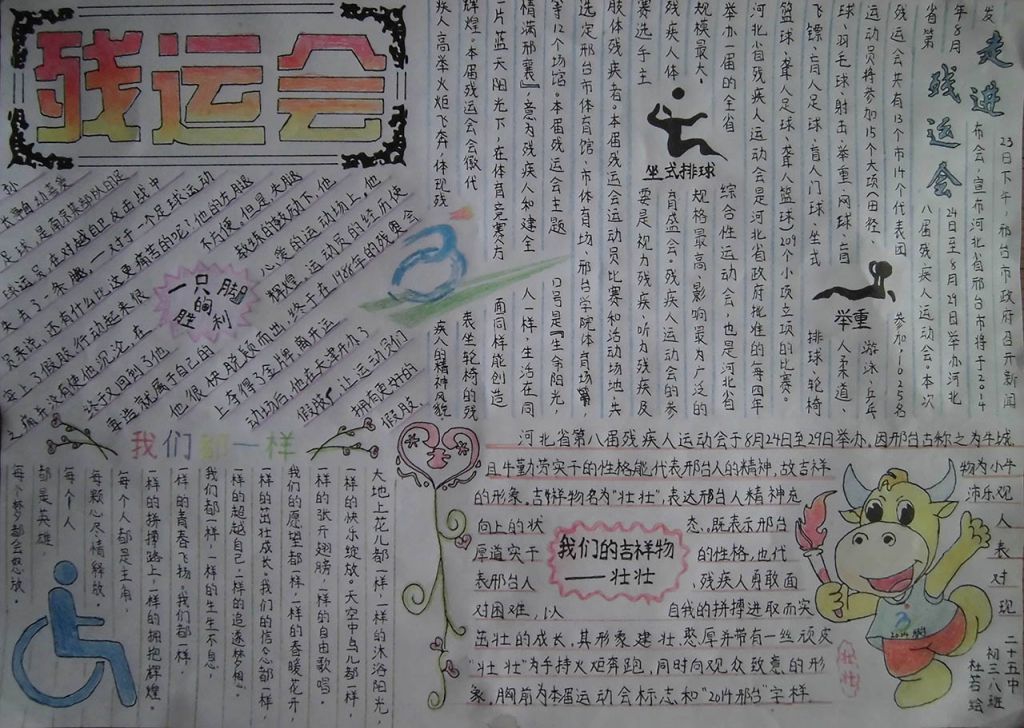 残运会
走进残运会
23日下午,邢台市政府召开新闻
发布会,宣布河北省邢台市将于2014
年8月24日至8月29日举办河北
省第八届残疾人运动会。本次
残运会共有13个市14个代表团参加,1025名
运动员将参加15个大项(田径、游泳、乒乓
球、羽毛球、射击、举重、网球、盲人柔道、
飞镖、盲人足球、盲人门球、坐式排球、轮椅
篮球、聋人足球、聋人篮球)209个小项立项的比赛。
河北省残疾人运动会是河北省政府批准的每四年
举办一届的全省综合性运动会,也是河北省
规模最大、规格最高、影响最为广泛的
残疾人体育盛会。残疾人运动会的参
赛选手主要是视力残疾、听力残疾及
肢体残疾者。本届残运会运动员比赛和活动场地,共
选定邢台市体育馆、市体育场、邢台学院体育场等
等12个场馆。本届残运会主题口号是『生命阳光,
情满邢襄』意为残疾人和建全人一样,生活在同
一片蓝天阳光下,在体育竞赛方面同样能创造
辉煌。本届残运会会徽代表坐轮椅的残
疾人高举火炬飞奔,体现残疾人的精神风貌
坐式排球
举重
一只脚的胜利
足球,是南京某部队的足
球运动员,在对越自卫反击战中
失去了一条腿,一对于一个足球运动
员来说,还有什么比这更痛苦的呢?他的左腿
安上了假肢,行动起来很不方便,但是,失腿
之痛并没有使他沉沦,在教练的鼓励下,他
终于又回到了他心爱的运动场上,他
再造就属于自己的辉煌,运动员的经历使
他很快脱颖而出,终于在1986年的残奥会
上夺得了金牌,离开运
动场后,他在天津开办了
假肢厂,让运动员们
拥有更好的
假肢。
我们都一样
大地上花儿都一样,一样的沐浴阳光
一样的快乐绽放。天空中鸟儿都一样,
一样的张开翅膀,一样的自由歌唱。
我们的愿望都一样,一样的春暖花开,
一样的茁壮成长,我们的信念都一样,
一样的超越自己,一样的追逐梦想。
我们都一样,一样的生生不息,
一样的青春飞扬,我们都一样,
一样的拼搏路上,一样的拥抱辉煌。
每个人都是主角,
每颗心尽情释放。
每个人
都是英雄
每个梦都会怒放。
河北省第八届残疾人运动会于8月24日至29日举办,因邢台古称之为牛城
且牛勤劳实干的性格能代表邢台人的精神,故吉祥物为小牛
的形象。吉祥物名为"壮壮",表达邢台人精神充沛乐观
向上的状态。既表示邢台人
厚道实干的性格,也代表
表邢台人、残疾人勇敢面对
对困难,以自我的拼搏进取而实现
茁壮的成长,其形象健壮、憨厚并带有一丝顽皮
"壮壮"为手持火炬奔跑,同时向观众致意的形
象,胸前为本届运动会标志和"2014邢台"字样
我们的吉祥物
——壮壮
壮壮
2014邢台
二十五中
初三八班
杜若绘